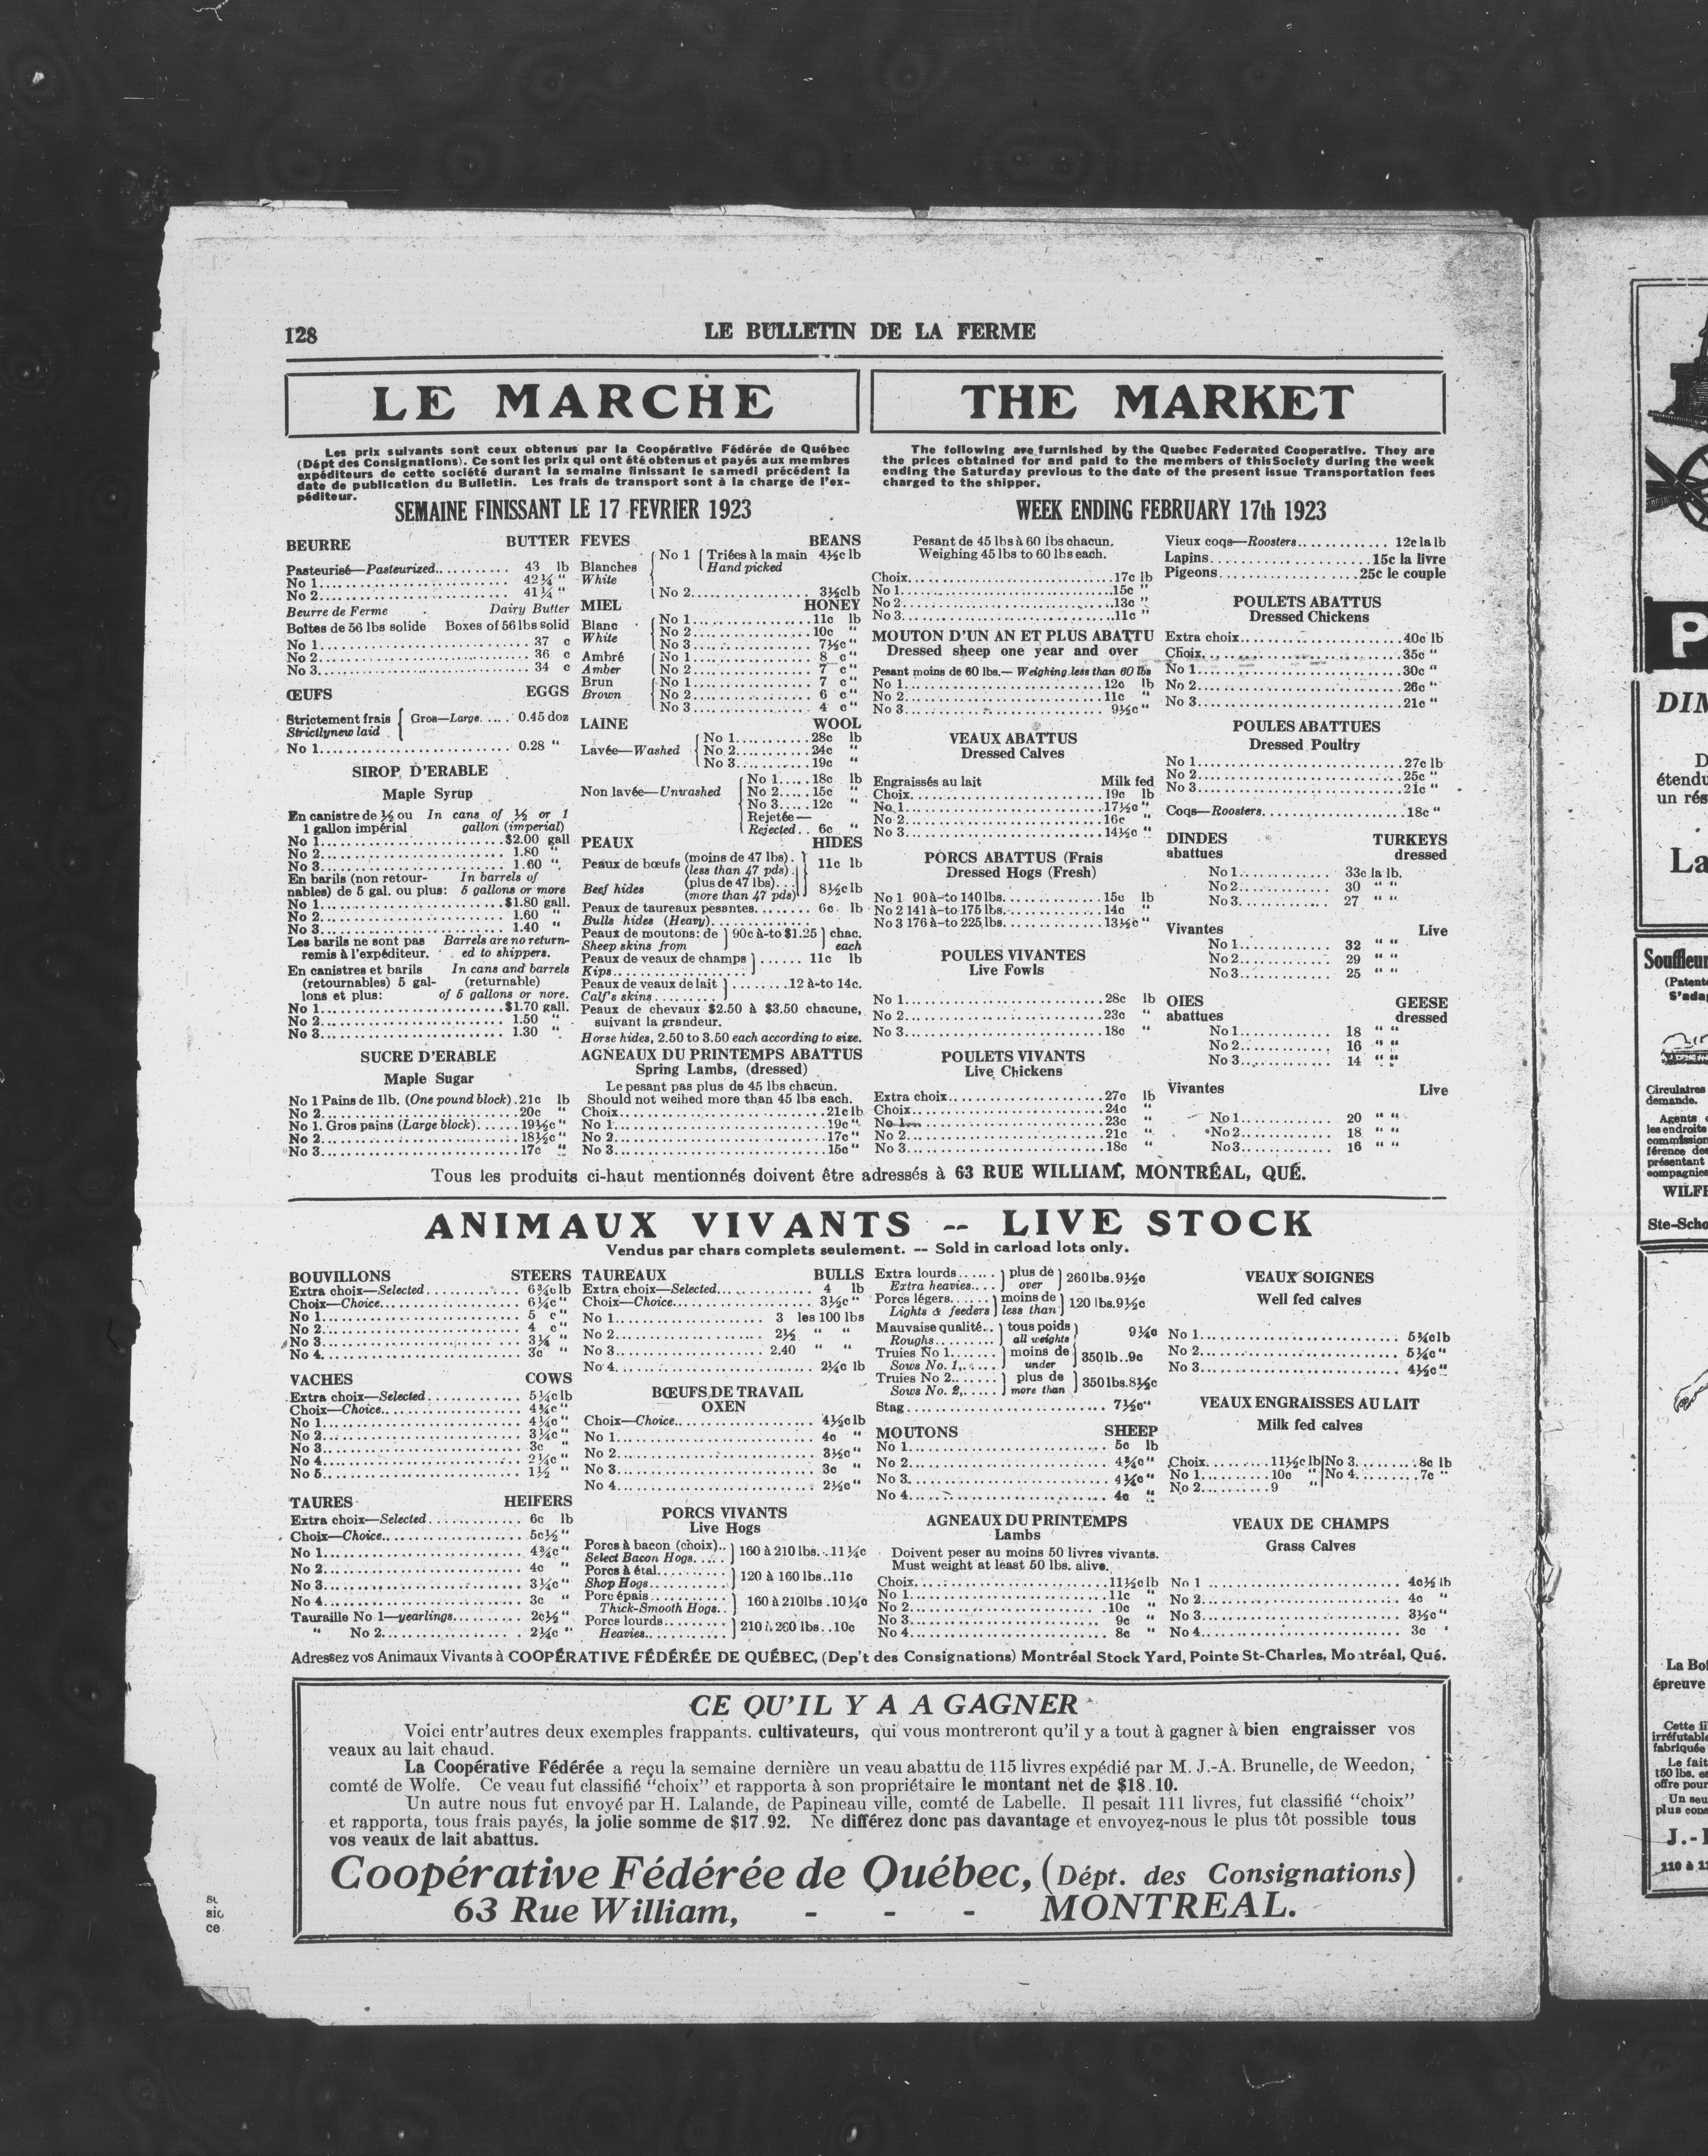 128
LE BULLETIN DE LA FERME
LE MARCHE
Les prix suivants sont ceux obtenus par la Coopérative Fédérée de Québec
(Dépt des Consignations). Ce sont les prix qui ont été obtenus et payés aux membres
expéditeurs de cette société durant la semaine finissant le samedi précédent la
date de publication du Bulletin. Les frais de transport sont à la charge de l'ex-
péditeur.
SEMAINE FINISSANT LE 17 FEVRIER 1923
THE MARKET
The following are furnished by the Quebec Federated Cooperative. They are
the prices obtained for and paid to the members of thisSociety during the week
ending the Saturday previous to the date of the present issue Transportation fees
charged to the shipper.
WEEK ENDING FEBRUARY 17th 1923
BEURRE BUTTER
Pasteurisé—Pasteurized.......... 43 lb
No 1.............................. 42¼ "
No 2.............................. 41¼ "
Beurre de Ferme Dairy Butter
Boîtes de 56 lbs solide Boxes of 56 lbs solid
No 1.............................. 37 c
No 2.............................. 36 c
No 3.............................. 34 c
ŒUFS EGGS
Strictement frais { Gros—Large..... 0.45 doz
Strictlynew laid
No 1.............................. 0.28 "
SIROP D'ERABLE
Maple Syrup
En canistre de ½ ou In cans of ½ or 1
1 gallon impérial gallon (imperial)
No 1..............................$2.00 gall
No 2.............................. 1.80 "
No 3.............................. 1.60 "
En barils (non retour- In barrels of
nables) de 5 gal. ou plus: 5 gallons or more
No 1..............................$1.80 gall.
No 2.............................. 1.60 "
No 3.............................. 1.40 "
Les barils ne sont pas Barrels are no return-
remis à l'expéditeur. ed to shippers.
En canistres et barils In cans and barrels
(retournables) 5 gal- (returnable)
lons et plus: of 5 gallons or nore.
No 1..............................$1.70 gall.
No 2.............................. 1.50 "
No 3.............................. 1.30 "
SUCRE D'ERABLE
Maple Sugar
No 1 Pains de 1lb. (One pound block).21c lb
No 2..............................20c "
No 1. Gros pains (Large block)......19½c "
No 2..............................18½c "
No 3..............................17c "
FEVES BEANS
Blanches { No 1 { Triées à la main 4½c lb
White Hand picked
No 2.................... 3½clb
MIEL HONEY
Blanc { No 1....................11c lb
White No 2....................10c "
No 3.................... 7½c "
Ambré { No 1.................... 8 c "
Amber No 2.................... 7 c "
Brun { No 1.................... 7 c "
Brown No 2.................... 6 c "
No 3.................... 4 c "
LAINE WOOL
Lavée—Washed { No 1...........28c lb
No 2...........24c "
No 3...........19c "
Non lavée—Unwashed { No 1.....18c lb
No 2.....15c "
No 3.....12c "
Rejetée—
Rejected.. 6c "
PEAUX HIDES
Peaux de bœufs (moins de 47 lbs). } 11c lb
(less than 47 pds).
Beef hides (plus de 47 lbs)... } 8½clb
(more than 47 pds)
Peaux de taureaux pesantes........ 6c lb
Bulls hides (Heavy)..............
Peaux de moutons: de } 90c à-to $1.25 } chac.
Sheep skins from each
Peaux de veaux de champs } ...... 11c lb
Kips....................
Peaux de veaux de lait } ........12 à-to 14c.
Calf's skins.........
Peaux de chevaux $2.50 à $3.50 chacune,
suivant la grandeur.
Horse hides, 2.50 to 3.50 each according to size.
AGNEAUX DU PRINTEMPS ABATTUS
Spring Lambs, (dressed)
Le pesant pas plus de 45 lbs chacun.
Should not weihed more than 45 lbs each.
Choix..............................21c lb
No 1..............................19c "
No 2..............................17c "
No 3..............................15c "
Pesant de 45 lbs à 60 lbs chacun.
Weighing 45 lbs to 60 lbs each.
Choix..............................17c lb
No 1..............................15c "
No 2..............................13c "
No 3..............................11c "
MOUTON D'UN AN ET PLUS ABATTU
Dressed sheep one year and over
Pesant moins de 60 lbs.—Weighing less than 60 lbs
No 1..............................12c lb
No 2..............................11c "
No 3.............................. 9½c "
VEAUX ABATTUS
Dressed Calves
Engraissés au lait Milk fed
Choix..............................19c lb
No 1..............................17½c "
No 2..............................16c "
No 3..............................14½c "
PORCS ABATTUS (Frais
Dressed Hogs (Fresh)
No 1 90 à-to 140 lbs...............15c lb
No 2 141 à-to 175 lbs..............14c "
No 3 176 à-to 225 lbs..............13½c "
POULES VIVANTES
Live Fowls
No 1..............................28c lb
No 2..............................23c "
No 3..............................18c "
POULETS VIVANTS
Live Chickens
Extra choix........................27c lb
Choix..............................24c "
No 1..............................23c "
No 2..............................21c "
No 3..............................18c "
Vieux coqs—Roosters............ 12c la lb
Lapins........................15c la livre
Pigeons....................25c le couple
POULETS ABATTUS
Dressed Chickens
Extra choix........................40c lb
Choix..............................35c "
No 1..............................30c "
No 2..............................26c "
No 3..............................21c "
POULES ABATTUES
Dressed Poultry
No 1..............................27c lb
No 2..............................25c "
No 3..............................21c "
Coqs—Roosters....................18c "
DINDES TURKEYS
abattues dressed
No 1............. 33c la lb.
No 2............. 30 " "
No 3............. 27 " "
Vivantes Live
No 1............. 32 " "
No 2............. 29 " "
No 3............. 25 " "
OIES GEESE
abattues dressed
No 1............. 18 " "
No 2............. 16 " "
No 3............. 14 " "
Vivantes Live
No 1............. 20 " "
No 2............. 18 " "
No 3............. 16 " "
Tous les produits ci-haut mentionnés doivent être adressés à 63 RUE WILLIAM, MONTRÉAL, QUÉ.
ANIMAUX VIVANTS -- LIVE STOCK
Vendus par chars complets seulement. -- Sold in carload lots only.
BOUVILLONS STEERS
Extra choix—Selected............... 6¾c lb
Choix—Choice...................... 6¼c "
No 1.............................. 5 c "
No 2.............................. 4 c "
No 3.............................. 3¼ "
No 4.............................. 3c "
VACHES COWS
Extra choix—Selected............... 5¼c lb
Choix—Choice...................... 4¾c "
No 1.............................. 4¼c "
No 2.............................. 3¼c "
No 3.............................. 3c "
No 4.............................. 2¼c "
No 5.............................. 1½ "
TAURES HEIFERS
Extra choix—Selected............... 6c lb
Choix—Choice...................... 5c½ "
No 1.............................. 4¾c "
No 2.............................. 4c "
No 3.............................. 3¼c "
No 4.............................. 3c "
Tauraille No 1—yearlings........... 2c½ "
" No 2......................... 2¼c "
TAUREAUX BULLS
Extra choix—Selected............... 4 lb
Choix—Choice...................... 3½c "
No 1......................... 3 les 100 lbs
No 2......................... 2½ " "
No 3......................... 2.40 " "
No 4.............................. 2¼c lb
BŒUFS DE TRAVAIL
OXEN
Choix—Choice...................... 4½c lb
No 1.............................. 4c "
No 2.............................. 3½c "
No 3.............................. 3c "
No 4.............................. 2½c "
PORCS VIVANTS
Live Hogs
Porcs à bacon (choix).. } 160 à 210 lbs...11¼c
Select Bacon Hogs.....
Porcs à étal........... } 120 à 160 lbs..11c
Shop Hogs............
Porc épais............ } 160 à 210lbs .10¼c
Thick-Smooth Hogs..
Porcs lourds.......... } 210 à 260 lbs..10c
Heavies............
Extra lourds...... } plus de } 260 lbs.9½c
Extra heavies.... over
Porcs légers...... } moins de } 120 lbs.9½c
Lights & feeders less than
Mauvaise qualité.. } tous poids } 9¼c
Roughs......... all weights
Truies No 1....... } moins de } 350lb..9c
Sows No. 1,..... under
Truies No 2....... } plus de } 350 lbs.8½c
Sows No. 2,..... more than
Stag.............................. 7½c"
MOUTONS SHEEP
No 1.............................. 5c lb
No 2.............................. 4¾c "
No 3.............................. 4¼c "
No 4.............................. 4c "
AGNEAUX DU PRINTEMPS
Lambs
Doivent peser au moins 50 livres vivants.
Must weight at least 50 lbs. alive.
Choix..............................11½c lb
No 1..............................11c "
No 2..............................10c "
No 3.............................. 9c "
No 4.............................. 8c "
VEAUX SOIGNES
Well fed calves
No 1.............................. 5¾c lb
No 2.............................. 5¼c "
No 3.............................. 4½c "
VEAUX ENGRAISSES AU LAIT
Milk fed calves
Choix..........11½c lb|No 3.........8c lb
No 1..........10c " |No 4.........7c "
No 2..........9 "
VEAUX DE CHAMPS
Grass Calves
No 1.............................. 4c½ lb
No 2.............................. 4c "
No 3.............................. 3½c "
No 4.............................. 3c "
Adressez vos Animaux Vivants à COOPÉRATIVE FÉDÉRÉE DE QUÉBEC, (Dep't des Consignations) Montréal Stock Yard, Pointe St-Charles, Montréal, Qué.
CE QU'IL Y A A GAGNER
Voici entr'autres deux exemples frappants. cultivateurs, qui vous montreront qu'il y a tout à gagner à bien engraisser vos
veaux au lait chaud.
La Coopérative Fédérée a reçu la semaine dernière un veau abattu de 115 livres expédié par M. J.-A. Brunelle, de Weedon,
comté de Wolfe. Ce veau fut classifié "choix" et rapporta à son propriétaire le montant net de $18.10.
Un autre nous fut envoyé par H. Lalande, de Papineau ville, comté de Labelle. Il pesait 111 livres, fut classifié "choix"
et rapporta, tous frais payés, la jolie somme de $17.92. Ne différez donc pas davantage et envoyez-nous le plus tôt possible tous
vos veaux de lait abattus.
Coopérative Fédérée de Québec, (Dépt. des Consignations)
63 Rue William, - - - MONTREAL.
sic
ce
P
DIM
D
étendu
un rés
La
Souffleur
(Patent
S'ada
Circulaires
demande.
Agents
les endroits
commission
férence des
présentant
compagnies
WILF
Ste-Scho
La Bo
épreuve
Cette li
irréfutable
fabriquée
Le fait
150 lbs. es
offre pour
Un seu
plus cons
J.-
110 à 1